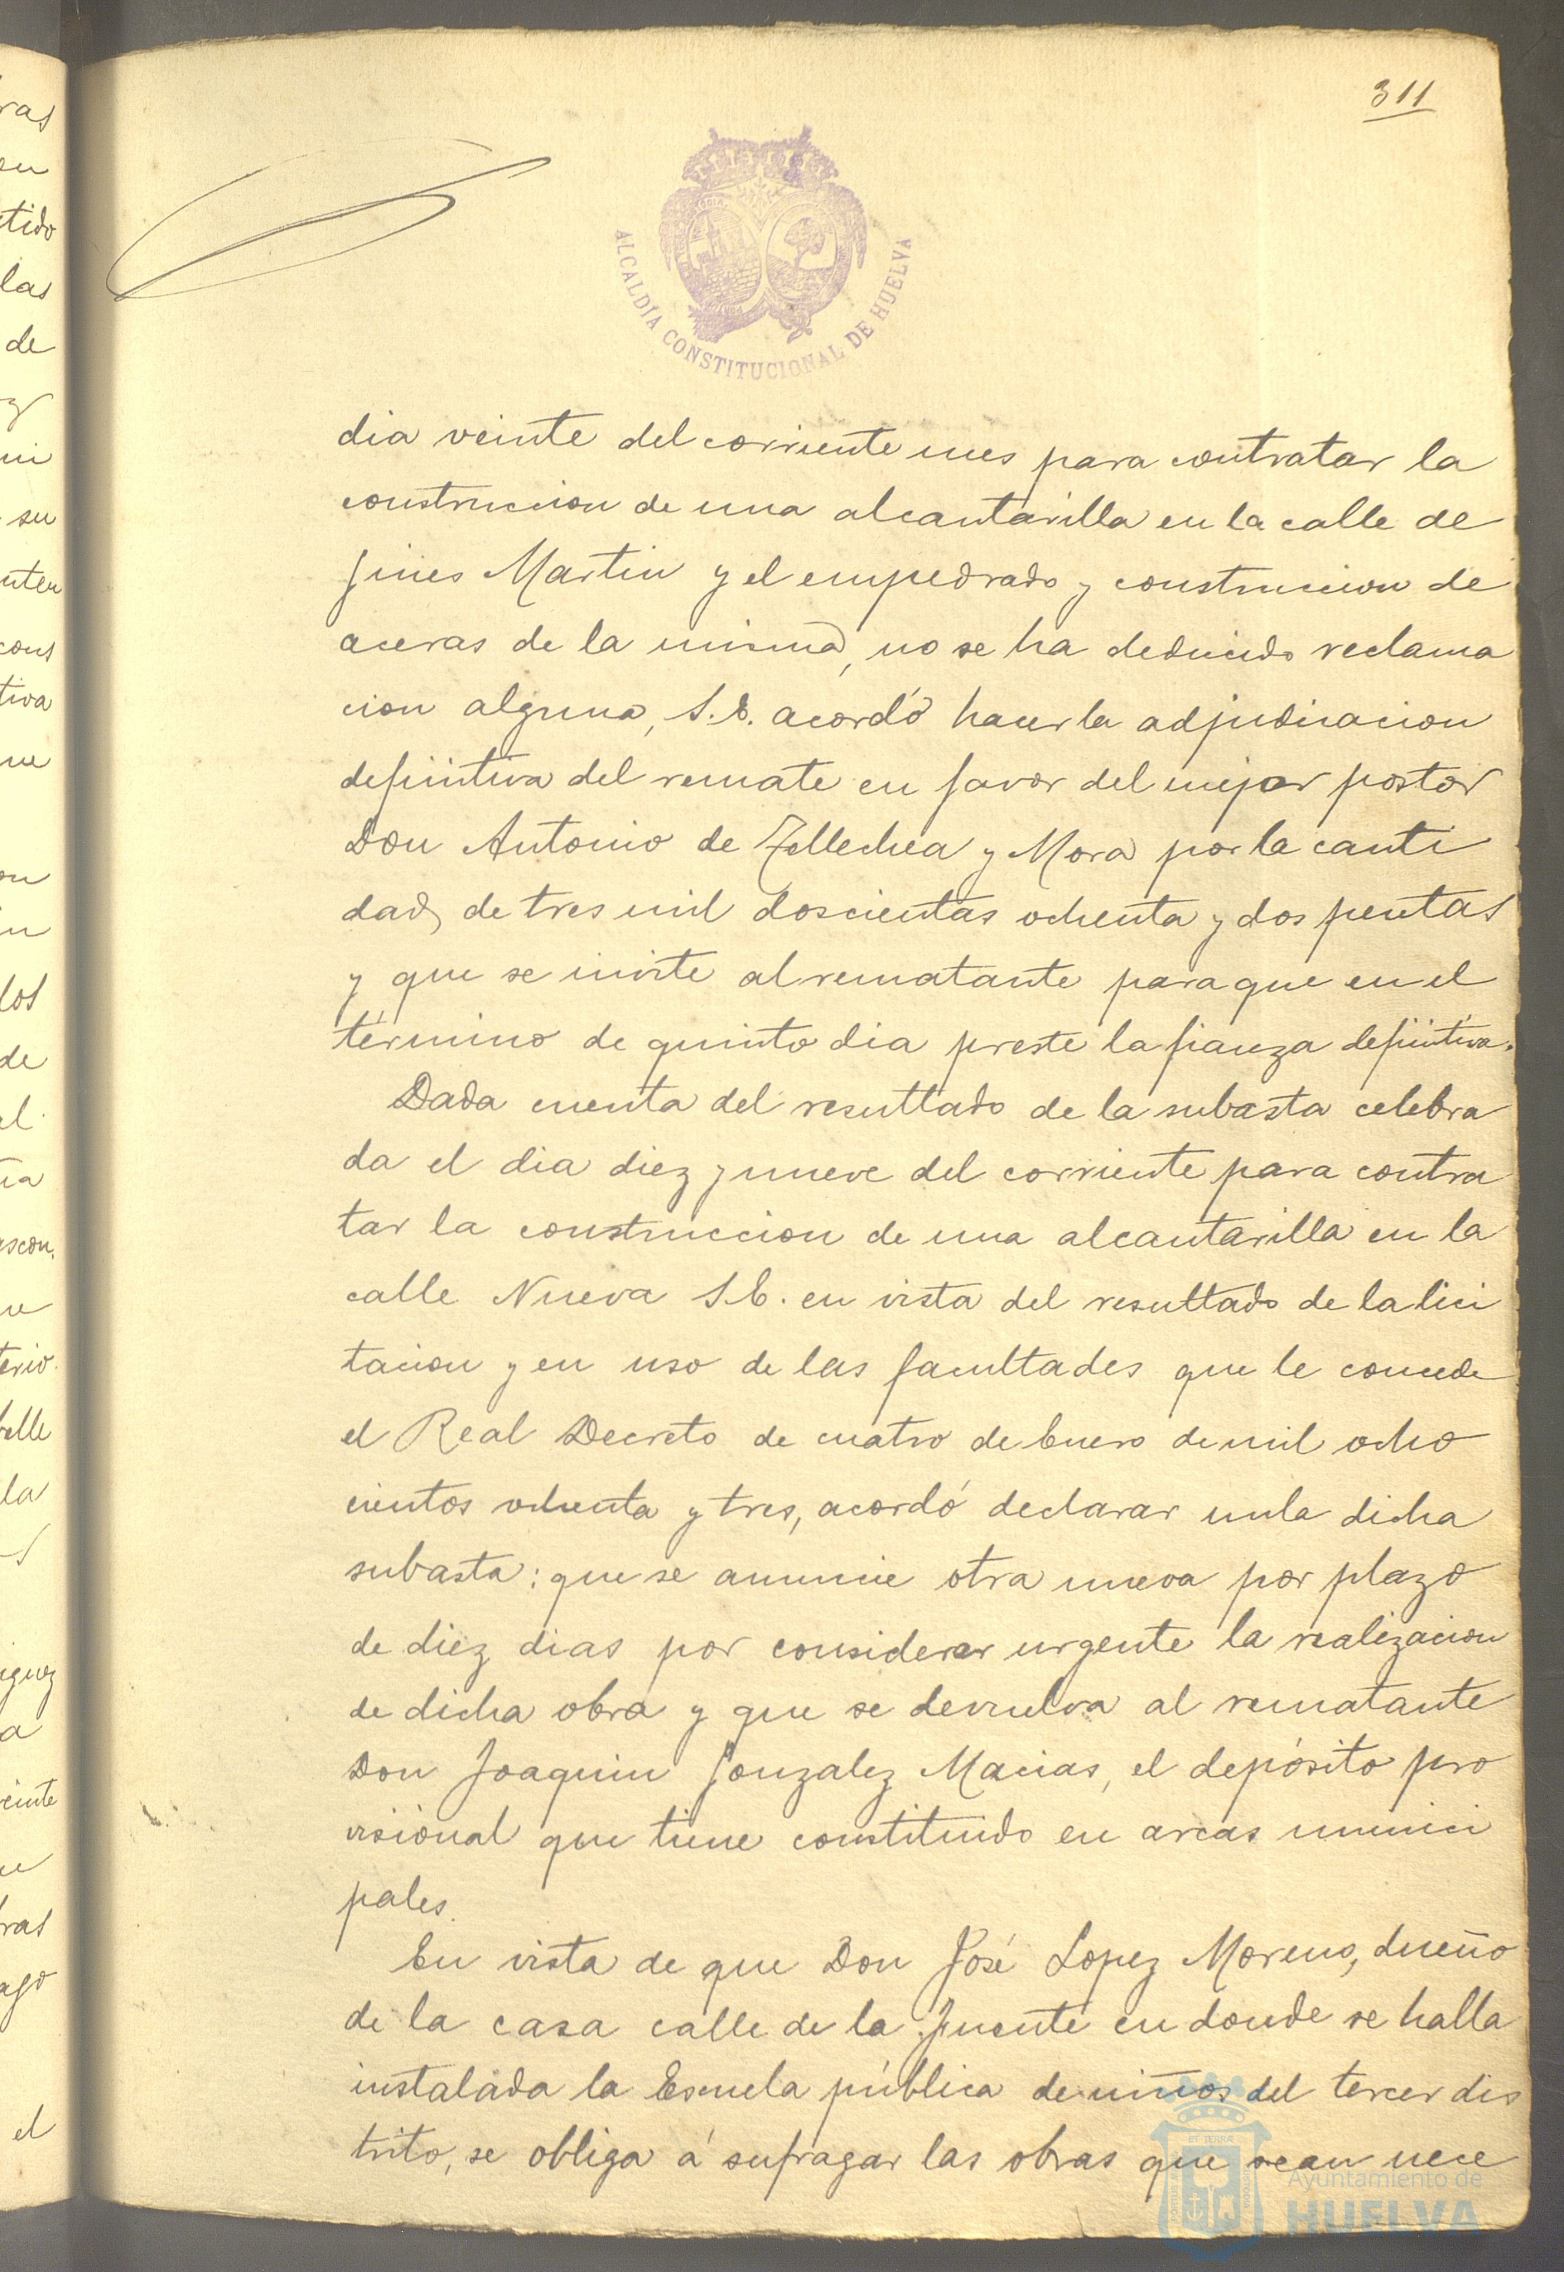 311
ALCALDÍA CONSTITUCIONAL DE HUELVA
dia veinte del corriente mes para contratar la
construccion de una alcantarilla en la calle de
Jines Martin y el empedrado y construccion de
aceras de la misma, no se ha deducido reclama
cion alguna, S.E. acordó hacer la adjudicacion
definitiva del remate en favor del mejor postor
Don Antonio de Tellechea y Mora por la canti
dad de tres mil doscientas ochenta y dos pesetas
y que se invite al rematante para que en el
término de quinto dia preste la fianza definitiva.
Dada cuenta del resultado de la subasta celebra
da el dia diez y nueve del corriente para contra
tar la construccion de una alcantarilla en la
calle Nueva S.E. en vista del resultado de la lici
tacion y en uso de las facultades que le concede
el Real Decreto de cuatro de Enero de mil ocho
cientos ochenta y tres, acordó declarar nula dicha
subasta: que se anuncie otra nueva por plazo
de diez dias por considerar urgente la realizacion
de dicha obra y que se devuelva al rematante
Don Joaquin Gonzalez Macias, el depósito pro
visional que tiene constituido en arcas munici
pales.
En vista de que Don José Lopez Moreno, dueño
de la casa calle de la Fuente en donde se halla
instalada la Escuela pública de niños del tercer dis
trito, se obliga á sufragar las obras que sean nece
Ayuntamiento de
HUELVA
ras
su
tido
las
de
su
cons
tiva
los
de
el
terio
la
iguez
a
ras
el